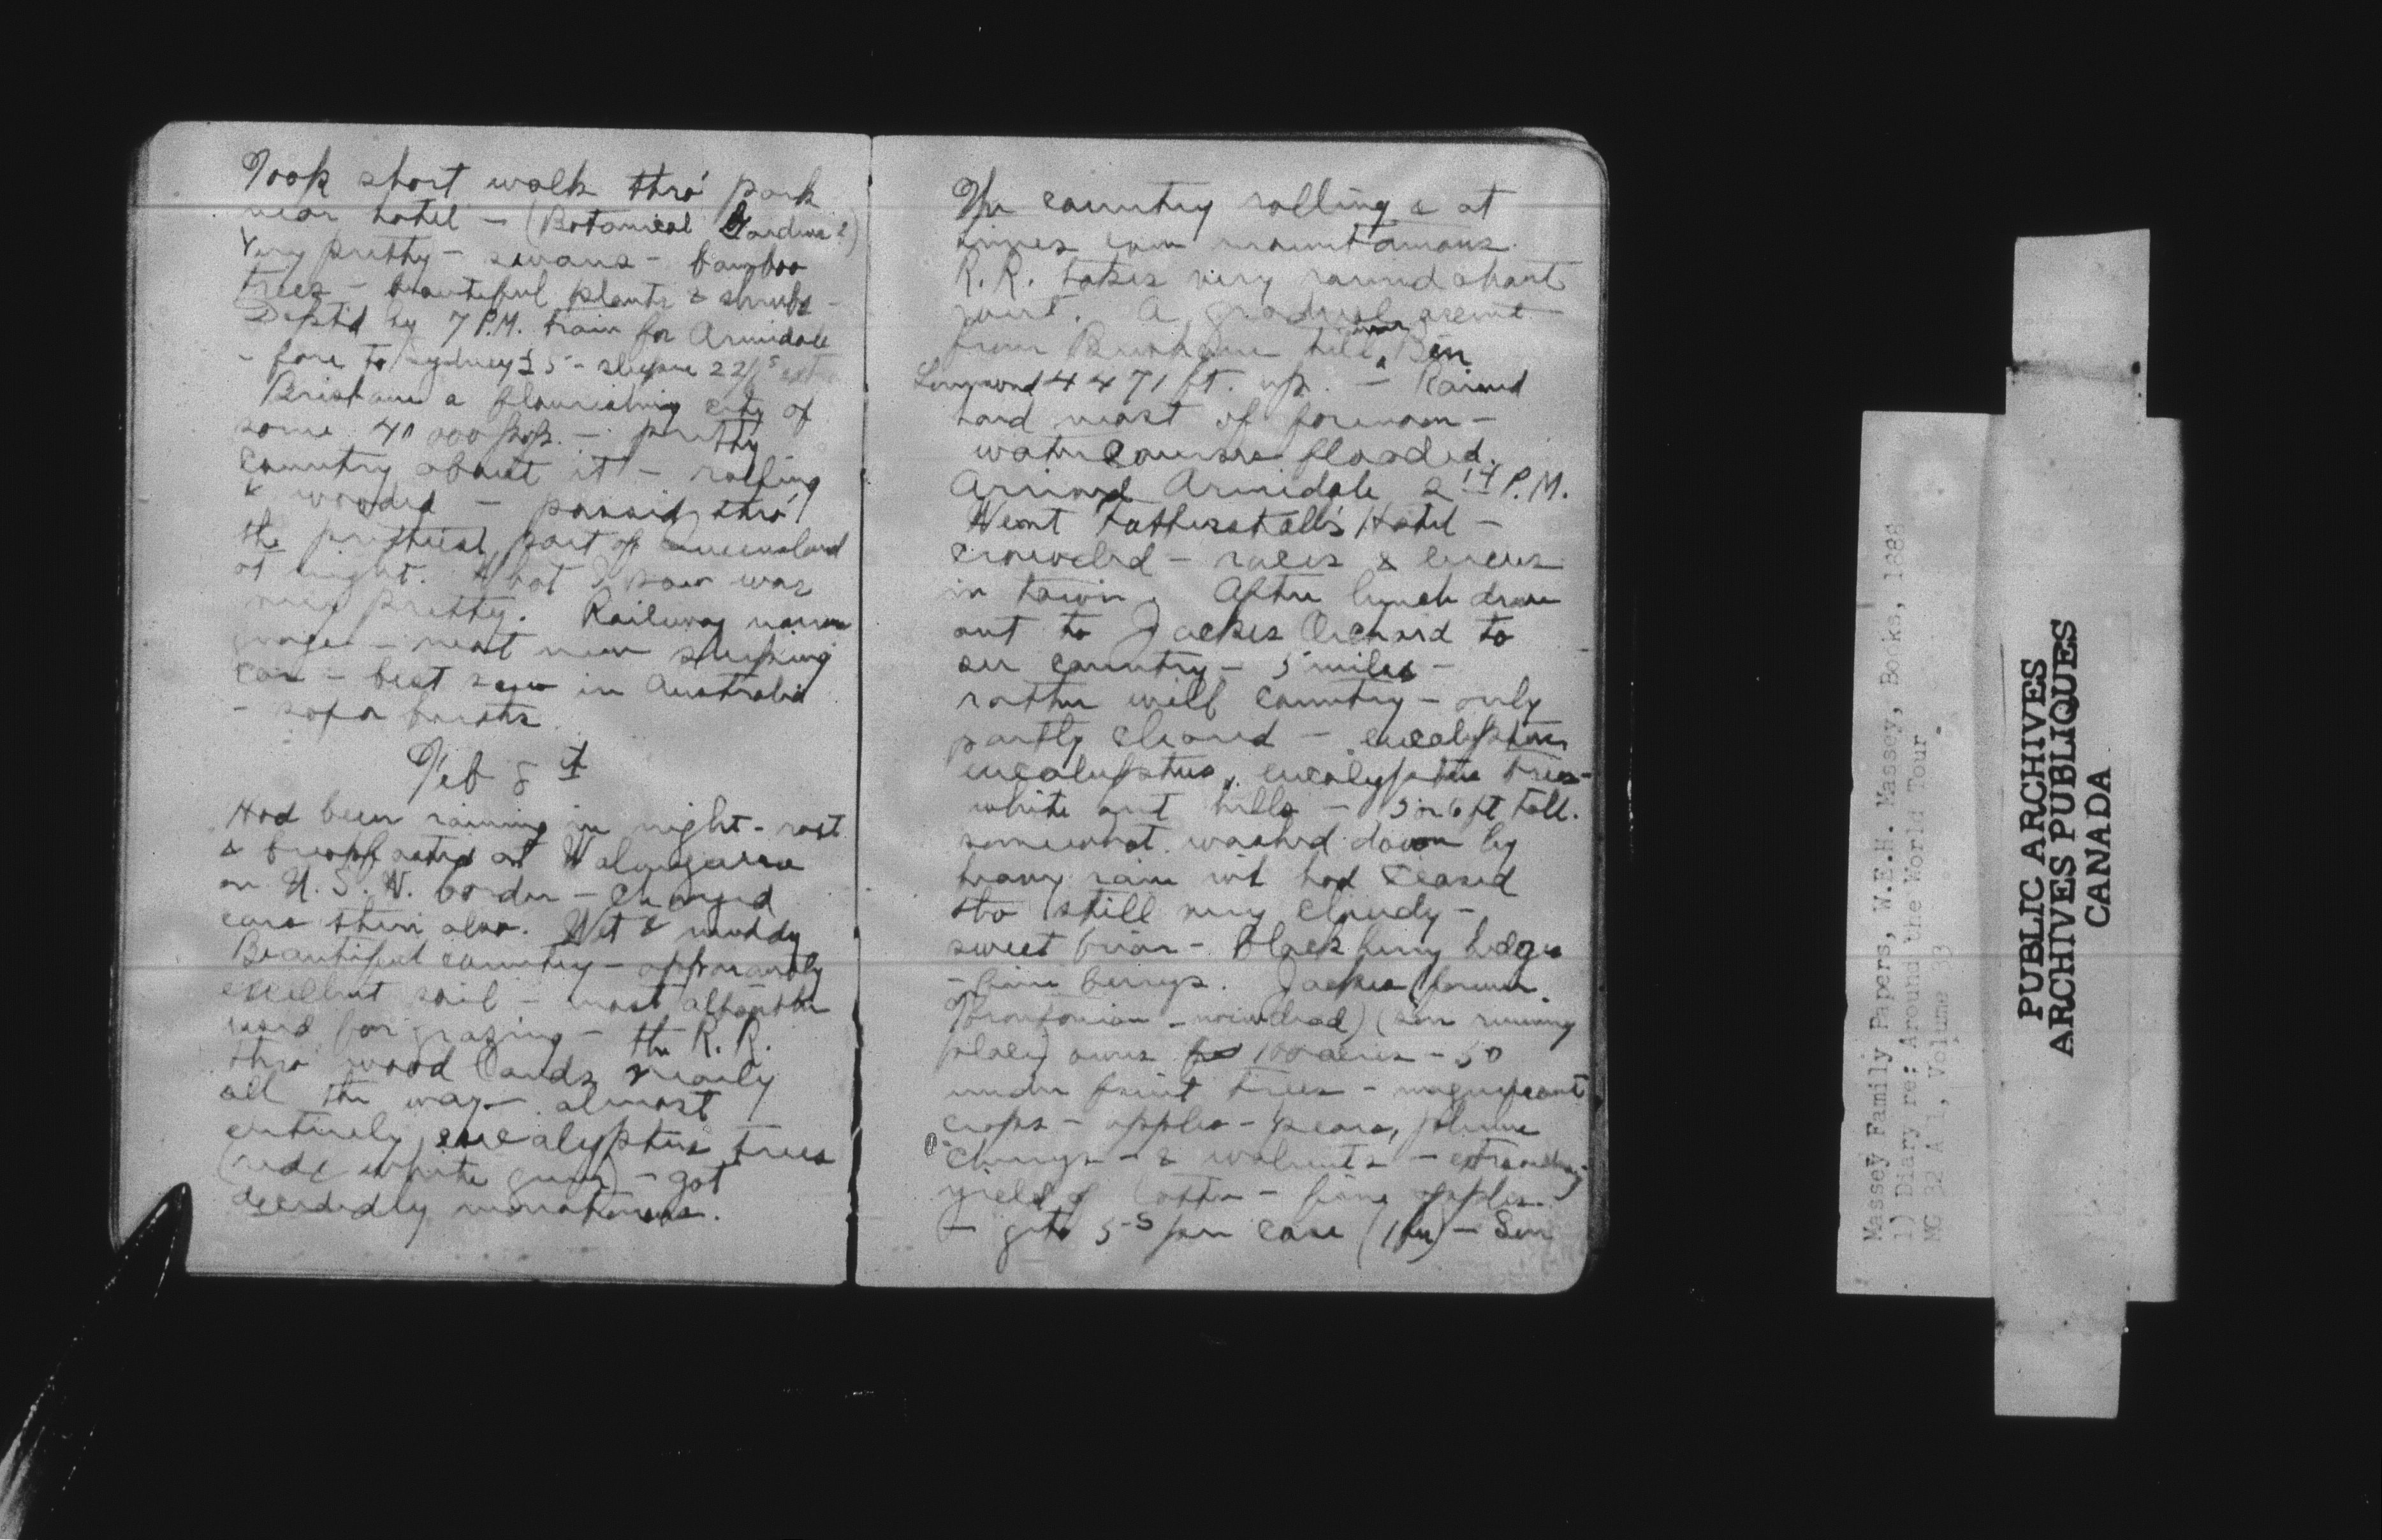 Took short walk thro' park
near hotel - (Botanical Gardens?)
Very pretty - swans - bamboo
trees - beautiful plants & shrubs -
Dept'd by 7 P.M. train for Armidale
- fare to Sydney £5 - sleeper 22/6
Brisbane a flourishing city of
some 40 000 pop. - pretty
country about it - rolling
& wooded - passed thro'
the prettiest part of Queensland
at night. What I saw was
very pretty. Railway narrow
guage - neat new sleeping
car - best saw in Australia
- sofa berths
Feb 8th
Had been raining in night -
& breakfasted at Walangarra
on N. S. W. border - changed
cars there also. Wet & muddy
Beautiful country - apparently
excellent soil - most altogether
used for grazing - the R. R.
thro wood lands nearly
all the way - almost
entirely eucalyptus trees
(red & white gum) - got
decidedly monotonous.
The country rolling & at
times even mountainous.
R. R. takes very round about
A gradual ascent
from Brisbane till near Ben
Lomond 4471 ft. up. - Rained
hard most of forenoon -
water courses flooded.
Arrived Armidale 2 14 P.M.
Went Tattersall's Hotel -
crowded - races & circus
in town. After lunch drove
out to Jackes Orchard to
see country - 5 miles -
rather wild country - only
partly cleared - eucalyptus
eucalyptus, eucalyptus trees -
white ant hills - 5 or 6 ft tall.
somewhat washed down by
heavy rain wh had ceased
tho still very cloudy -
sweet briar - Blackberry hedges
- fine berrys. Jackes (former
Torontonian - now dead) (son running
place) owns 100 acres - 50
under fruit trees - magnificent
crops - apples - pears, plums
cherrys - & walnuts - extraordinary
yield of latter - fine apples -
- gets 5-s per case (1 bu) -
Massey Family Papers, W.E.H. Massey, Books, 1888
1) Diary re: Around the World Tour
MG 32 A 1, Volume 33
PUBLIC ARCHIVES
ARCHIVES PUBLIQUES
CANADA